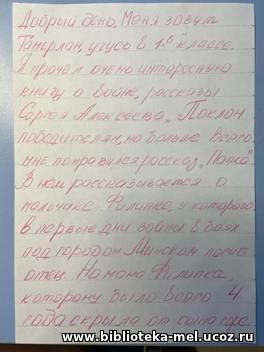 Добрый день. Меня зовут
Тамерлан, учусь в 1 "б" классе.
Я прочёл очень интересную
книгу о войне, рассказы
Сергея Алексеева "Поклон
победителям, но больше всего
мне понравился рассказ "Папка"
В нём рассказывается о
мальчике Филипке, у которого
в первые дни войны в боях
под городом Минском погиб
отец. Но мама Филипка,
которому было всего 4
года скрыла от сына горе.
www.biblioteka-mel.ucoz.ru